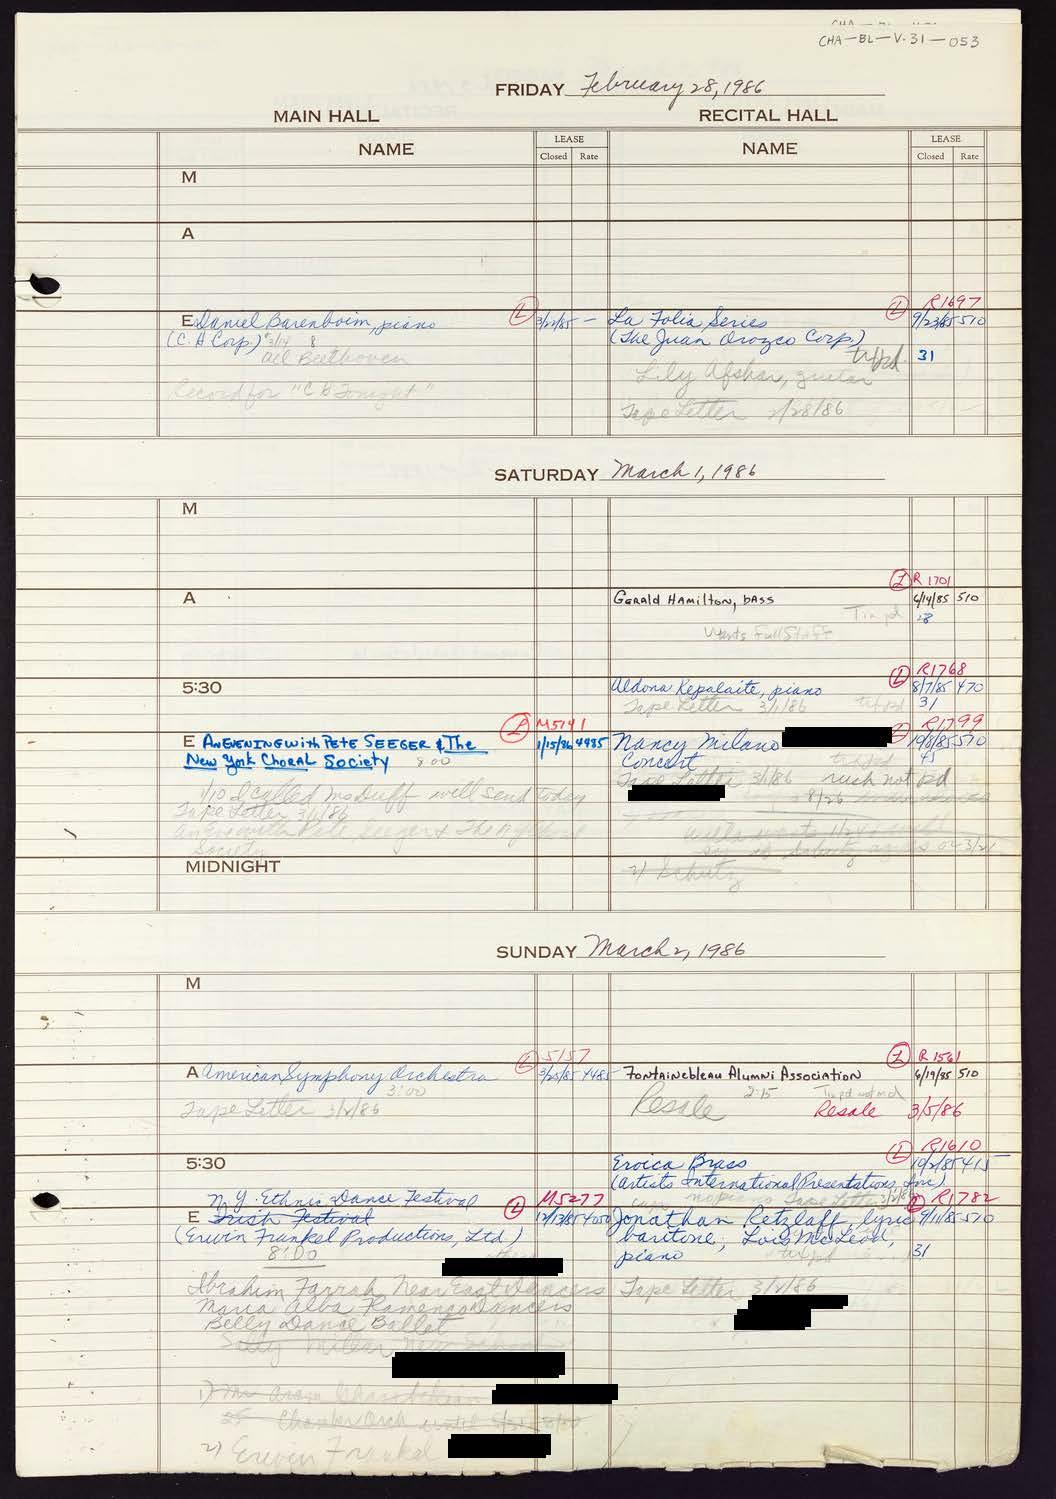 CHA-BL-V.31-053
FRIDAY February 28, 1986
MAIN HALL RECITAL HALL
NAME LEASE Closed Rate NAME LEASE Closed Rate
M
A
R1697
E Daniel Barenboim, piano L 3/22/85 — La Folia Series L 9/23/85 510
(C. H Corp) 3/14 8 (The Juan Orozco Corp.)
All Beethoven 31
Lily Afshar, guitar
Record for "CH Tonight"
Tape Letter 2/28/86
SATURDAY March 1, 1986
M
L R 1701
A Gerald Hamilton, bass 6/14/85 510
Tix pd 28
Wants Full Staff
L R1768
5:30 Aldona Kepalaite, piano 8/7/85 470
Tape Letter 3/1/86 31
L M5141 L R1799
E An Evening with Pete Seeger & The 1/15/86 4935 Nancy Milano 10/8/85 570
New York Choral Society 8:00 Concert 45
1/10 I called Ms Duff will send today Tape Letter 3/1/86 rush not pd
Tape Letter 3/1/86 8/26
An Eve with Pete Seeger & The NY
Society
MIDNIGHT
2) Schutz
SUNDAY March 2, 1986
M
L 5157 L R 1561
A American Symphony Orchestra 3/25/85 4485 Fontainebleau Alumni Association 6/19/85 510
3:00 2:15 Tix pd not md
Tape Letter 3/2/86 Resale Resale 3/5/86
L R1610
5:30 Eroica Brass 10/2/85 415
(Artists International Presentations, Inc)
N.Y. Ethnic Dance Festival L M5277 no piano Tape Letter 3/2/86 L R1782
E Irish Festival 12/13/85 4050 Jonathan Retzlaff, lyric 9/11/85 570
(Erwin Frankel Productions, Ltd.) baritone; Lois McLeod,
8:00 piano 31
Ibrahim Farrah Near East Dancers Tape Letter 3/2/86
Maria Alba Flamenco Dancers
Belly Dance Ballet
1)
Chamber Orch
2) Erwin Frankel